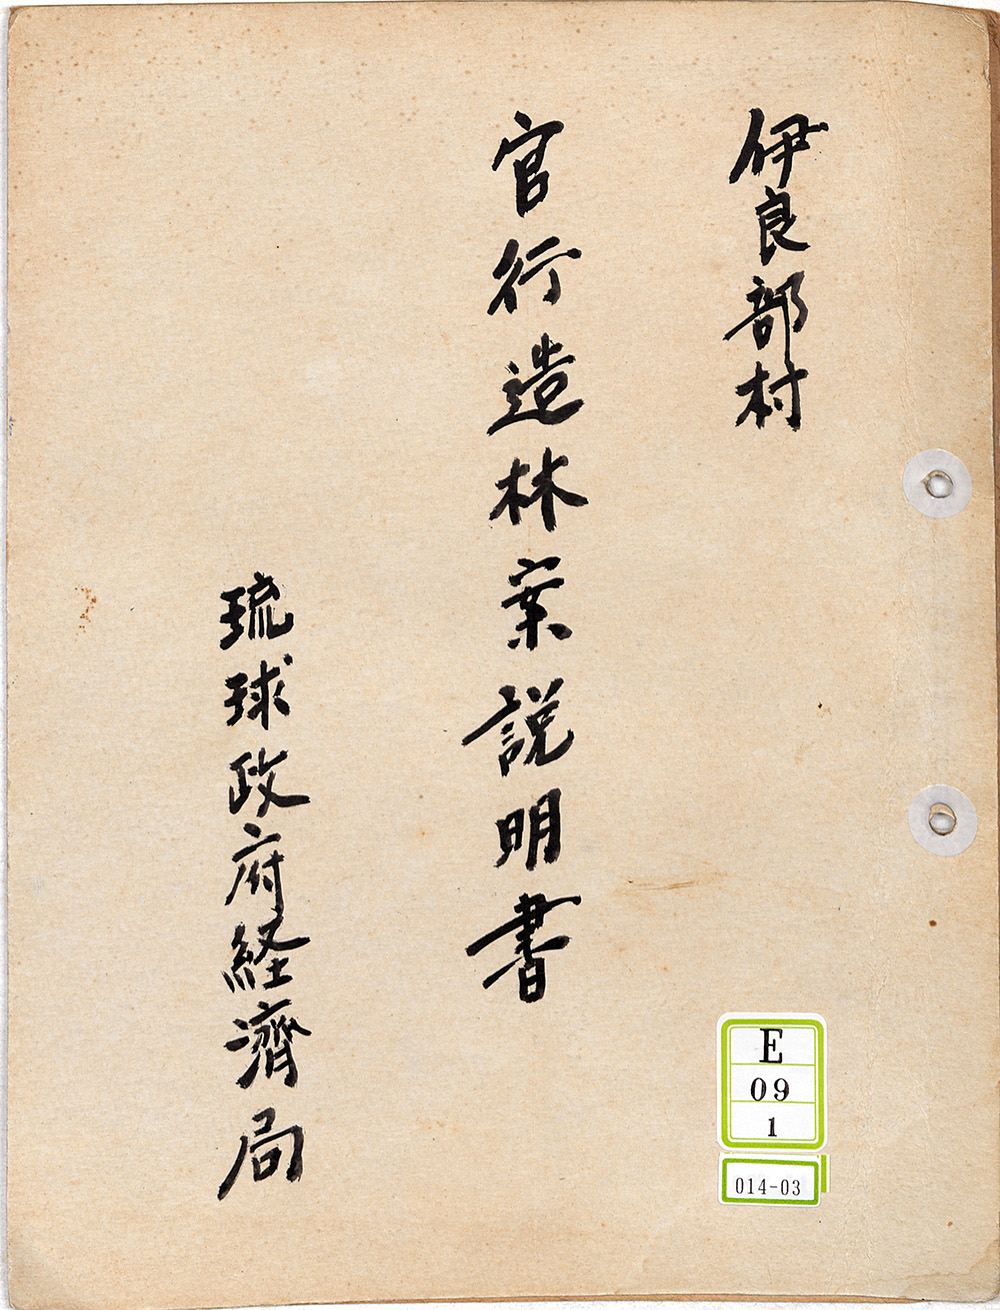 伊良部村
官行造林案説明書
琉球政府経済局
E
09
1
014-03